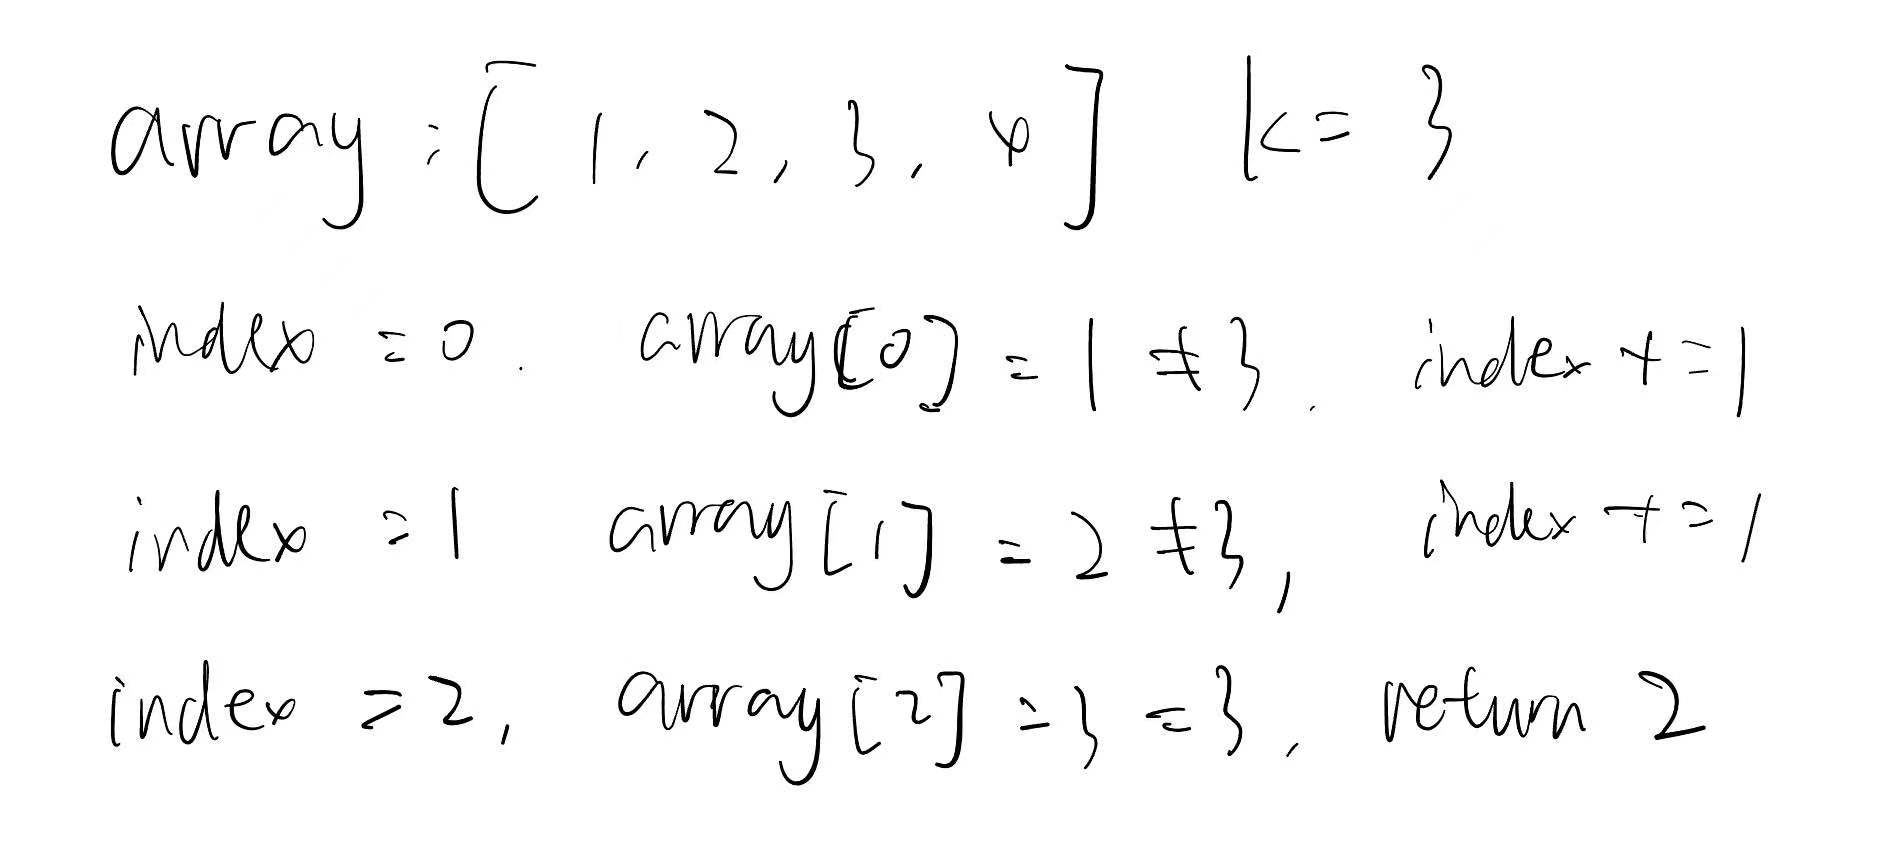 array : [ 1, 2, 3, 4 ] k = 3
index = 0. array[0] = 1 ≠ 3. index += 1
index = 1 array[1] = 2 ≠ 3, index += 1
index = 2, array[2] = 3 = 3. return 2